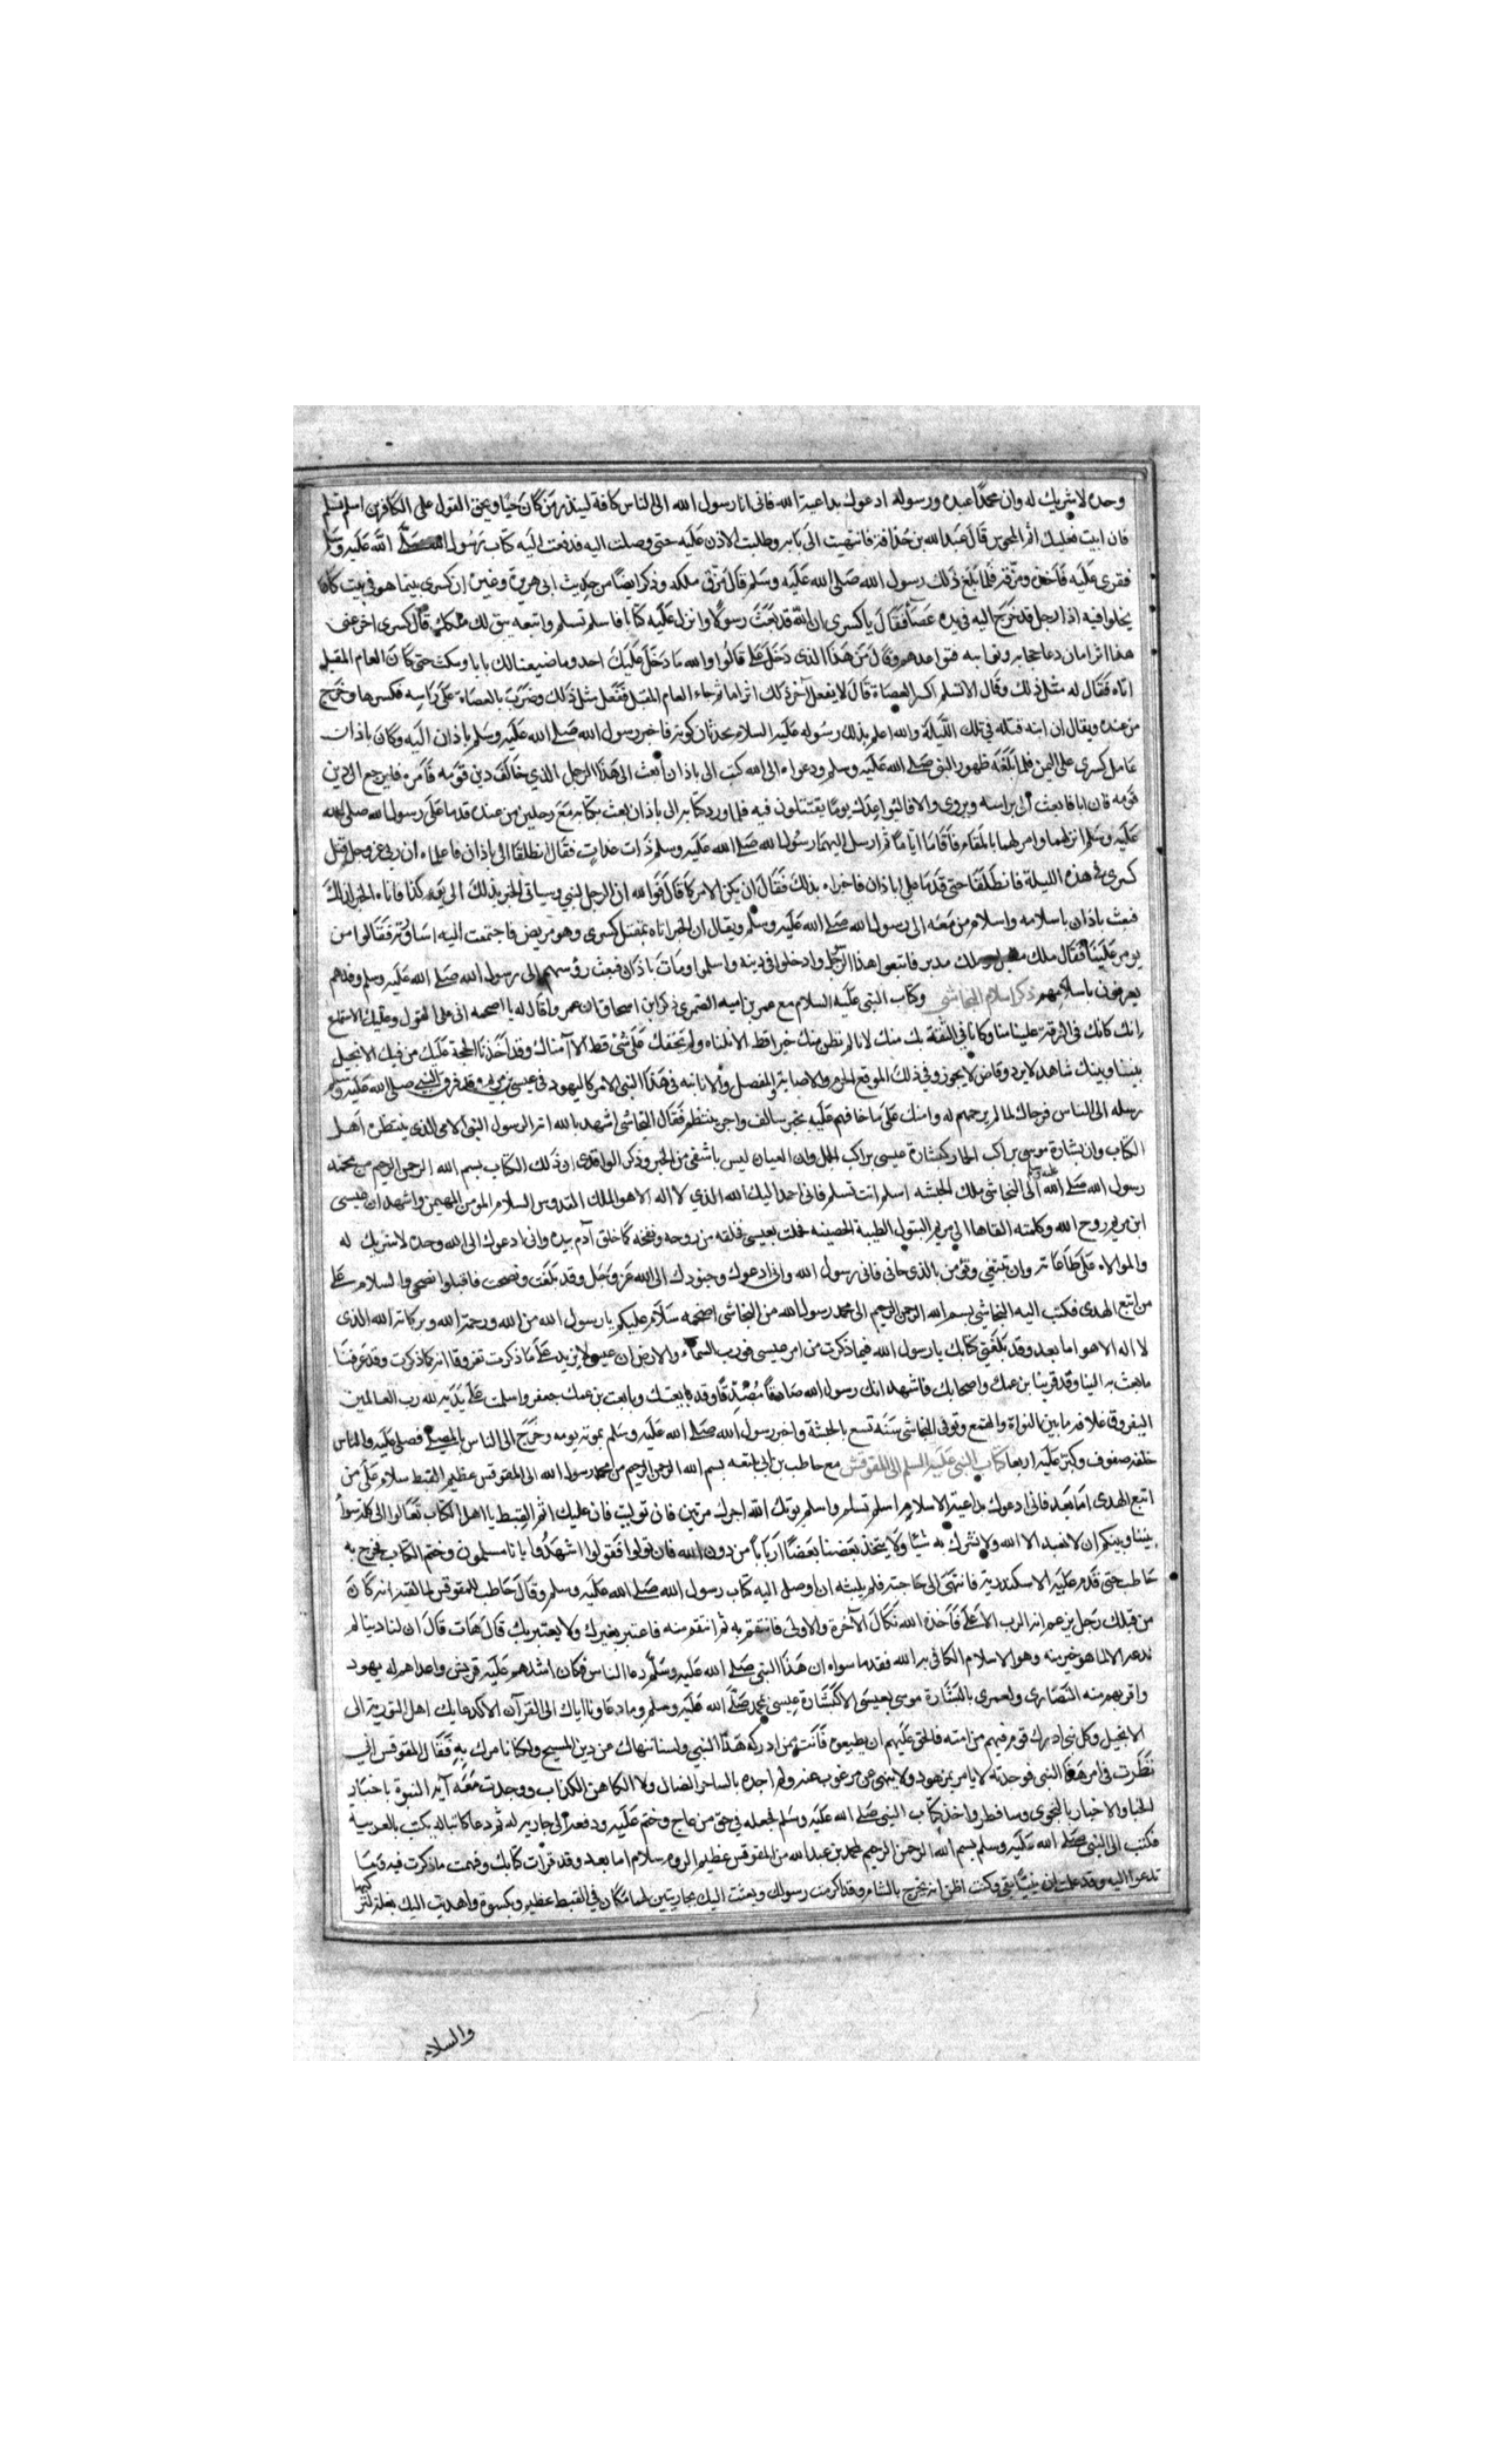 وحده لا شريك له وان محمدا عبده ورسوله ادعوك بداعية الله فانى انا رسول الله الى الناس كافة لينذر من كان حيا ويحق القول على الكافرين اسلم تسلم
فان ابيت فعليك اثم المجوس قال عبد الله بن حذافة فانتهيت الى بابه وطلبت الاذن عليه حتى وصلت اليه فدفعت اليه كتاب رسول الله صلى الله عليه وسلم
فقرى عليه فاخذه ومزقه فلما بلغ ذلك رسول الله صلى الله عليه وسلم قال مزق ملكه وذكر ايضا من حديث ابى هريرة وغيره ان كسرى بينما هو فى بيت كان
يخلوا فيه اذا رجل قد خرج اليه فى يده عصا فقال يا كسرى ان الله قد بعث رسولا وانزل عليه كتابا فاسلم تسلم واتبعه يبق لك ملكك قال كسرى اخر عنى
هذا اثرا ما ن دعا حجابه وبوابيه فتواعدهم وقال من هذا الذى دخل على قالوا والله ما دخل عليك احد وما ضيعنا لك بابا ومكث حتى كان العام المقبل
اتاه فقال له مثل ذلك وقال الا تسلم اكسر العصاة قال لا تفعل اخر ذلك اثرا ما ثم جاء العام المقبل ففعل مثل ذلك وضرب بالعصاة على راسه فكسرها وخرج
من عنده ويقال ان ابنه قتله فى تلك الليلة والله اعلم بذلك رسوله عليه السلام بحدثان كونه فاخبر رسول الله صلى الله عليه وسلم باذان اليه وكان باذان
عامل كسرى على اليمن فلما بلغه ظهور النبى صلى الله عليه وسلم ودعواه الى الله كتب الى باذان ابعث الى هذا الرجل الذي خالف دين قومه فامره فليرجع الى دين
قومه فان ابا فابعث الى براسه ويروى والا فاليواعدك يوما يقتتلون فيه فلما ورد كتابه الى باذان بعث بكتابه مع رجلين من عنده قدما على رسول الله صلى الله
عليه وسلم انزلهما وامر لهما بالمقام فاقاما اياما ثم ارسل اليهما رسول الله صلى الله عليه وسلم ذات غداة فقال انطلقا الى باذان فاعلماه ان ربى عز وجل قتل
كسرى فى هذه الليلة فانطلقا حتى قدما على باذان فاخبراه بذلك فقال ان يكن الامر كما قال فوالله ان الرجل لنبي وسياتى الخبر بذلك الى يوم كذا فاتاه الخبر لذلك
فبعث باذان باسلامه واسلام من معه الى رسول الله صلى الله عليه وسلم ويقال ان الخبر اتاه بمقتل كسرى وهو مريض فاجتمعت اليه اساورته فقالوا من
يومر علينا فقال ملك مقبل وملك مدبر فاتبعوا هذا الرجل وادخلوا فى دينه واسلموا ومات باذان فبعث رؤسهم الى رسول الله صلى الله عليه وسلم وفدهم
يعرفونه باسلامهم ذكر اسلام النجاشى وكتاب النبى عليه السلام مع عمرو بن اميه الضمرى ذكر ابن اسحاق ان عمروا قال له يا اصحمه انى على القول وعليك الاستماع
انك كانك فى الرقة علينا منا وكانا فى الثقة بك منك لانا لم نظن بك خيرا قط الا نلناه ولم نخفك على شئ قط الا آمناك وقد اخذنا الحجة عليك من فيك الانجيل
بيننا وبينك شاهد لا يرد وقاض لا يجوز وفي ذلك الموقع الحز والاصابة المفصل والا فانت فى هذا النبى الامى كاليهود فى عيسى بن مريم وقد فرق النبى صلى الله عليه وسلم
رسله الى الناس فرجاك لما لم يرجهم له وامنك على ما خافهم عليه بخير سالف واجر ينتظر فقال النجاشى اشهد بالله انه الرسول النبى الامى الذى ينتظره اهل
الكتاب وان بشارة موسى براكب الحمار كبشارة عيسى براكب الجمل وان العيان ليس باشفى من الخبر وذكر الواقدى ان ذلك الكتاب بسم الله الرحمن الرحيم من محمد
رسول الله صلى الله عليه وسلم الى النجاشى ملك الحبشه اسلم انت تسلم فانى احمد اليك الله الذي لا اله الا هو الملك القدوس السلام المومن المهيمن واشهد ان عيسى
ابن مريم روح الله وكلمته القاها الى مريم البتول الطيبة الحصينه فحملت بعيسى فخلقه من روحه ونفخه كما خلق آدم بيده وانى ادعوك الى الله وحده لا شريك له
والموالاه على طاعته وان تتبعنى وتؤمن بالذى جانى فانى رسول الله وانى ادعوك وجنودك الى الله عز وجل وقد بلغت ونصحت فاقبلوا نصحى والسلام على
من اتبع الهدى فكتب اليه النجاشى بسم الله الرحمن الرحيم الى محمد رسول الله من النجاشى اصحمه سلام عليكم يا رسول الله من الله ورحمة الله وبركاته الله الذى
لا اله الا هو اما بعد وقد بلغنى كتابك يا رسول الله فيما ذكرت من امر عيسى فورب السماء والارض ان عيسى لا يزيد على ما ذكرت تفروقا انه كما ذكرت وقد عرفنا
ما بعثت به الينا وقد قربنا بن عمك واصحابك فاشهد انك رسول الله صادقا مصدقا وقد بايعتك وبايعت بن عمك جعفر واسلمت على يديه لله رب العالمين
اليفروق علاقه ما بين النواة والقمع وتوفى النجاشى سنة تسع بالحبشة واخبر رسول الله صلى الله عليه وسلم بموته يومه وخرج الى الناس بالمصلى فصلى عليه والناس
خلفه صفوف وكبر عليه اربعا كتاب النبى عليه السلم الى المقوقش مع حاطب بن ابى بلتعه بسم الله الرحمن الرحيم من محمد رسول الله الى المقوقس عظيم القبط سلام على من
اتبع الهدى اما بعد فانى ادعوك بداعية الاسلام اسلم تسلم واسلم يوتك الله اجرك مرتين فان توليت فان عليك اثم القبط يا اهل الكتاب تعالوا الى كلمة سواء
بيننا وبينكم ان لا نعبد الا الله ولا نشرك به شيئا ولا يتخذ بعضنا بعضا اربابا من دون الله فان تولوا فقولوا اشهدوا بانا مسلمون وختم الكتاب فخرج به
حاطب حتى قدم عليه الاسكندرية فانتهى الى حاجبه فلم يلبثه ان اوصل اليه كتاب رسول الله صلى الله عليه وسلم وقال حاطب للمقوقس لما لقيه انه كان
من قبلك رجل يزعم انه الرب الاعلى فاخذه الله نكال الآخرة والاولى فانتقم به ثم انتقم منه فاعتبر بغيرك ولا يعتبر بك قال هات قال ان لنا دينا لم
ندعه الا لما هو خير منه وهو الاسلام الكافى به الله فقد ما سواه ان هذا النبى صلى الله عليه وسلم دعا الناس فكان اشدهم عليه قريش واعداهم له يهود
واقربهم منه النصارى ولعمرى بالبشارة موسى بعيسى الا كبشارة عيسى بمحمد صلى الله عليه وسلم وما دعاونا اياك الى القرآن الا كدعايك اهل التورية الى
الانجيل وكل نبى ادرك قوم فهم من امته فالحق عليهم ان يطيعوه فانت ممن ادركه هذا النبى ولسنا ننهاك عن دين المسيح ولكنا نامرك به فقال المقوقس انى
نظرت فى امر هذا النبى فوجدته لا يامر بمزهود ولا ينهى عن مرغوب عنه ولم اجده بالساحر الضال ولا الكاهن الكذاب ووجدت معه آية النبوة باخبار
الخبا والاخبار بالنجوى وسانظر واخذ كتاب النبى صلى الله عليه وسلم فجعله فى حق من عاج وختم عليه ودفعه الى جارية له ثم دعا كاتبا له يكتب بالعربية
فكتب الى النبى صلى الله عليه وسلم بسم الله الرحمن الرحيم لمحمد بن عبد الله من المقوقس عظيم الروم سلام اما بعد وقد قرات كتابك وفهمت ما ذكرت فيه وما
تدعوا اليه وقد علمت ان نبيا بقى وكنت اظن انه يخرج بالشام وقد اكرمت رسولك وبعثت اليك بجاريتين لهما مكان فى القبط عظيم وبكسوة واهديت اليك بغلة لتركبها
والسلام